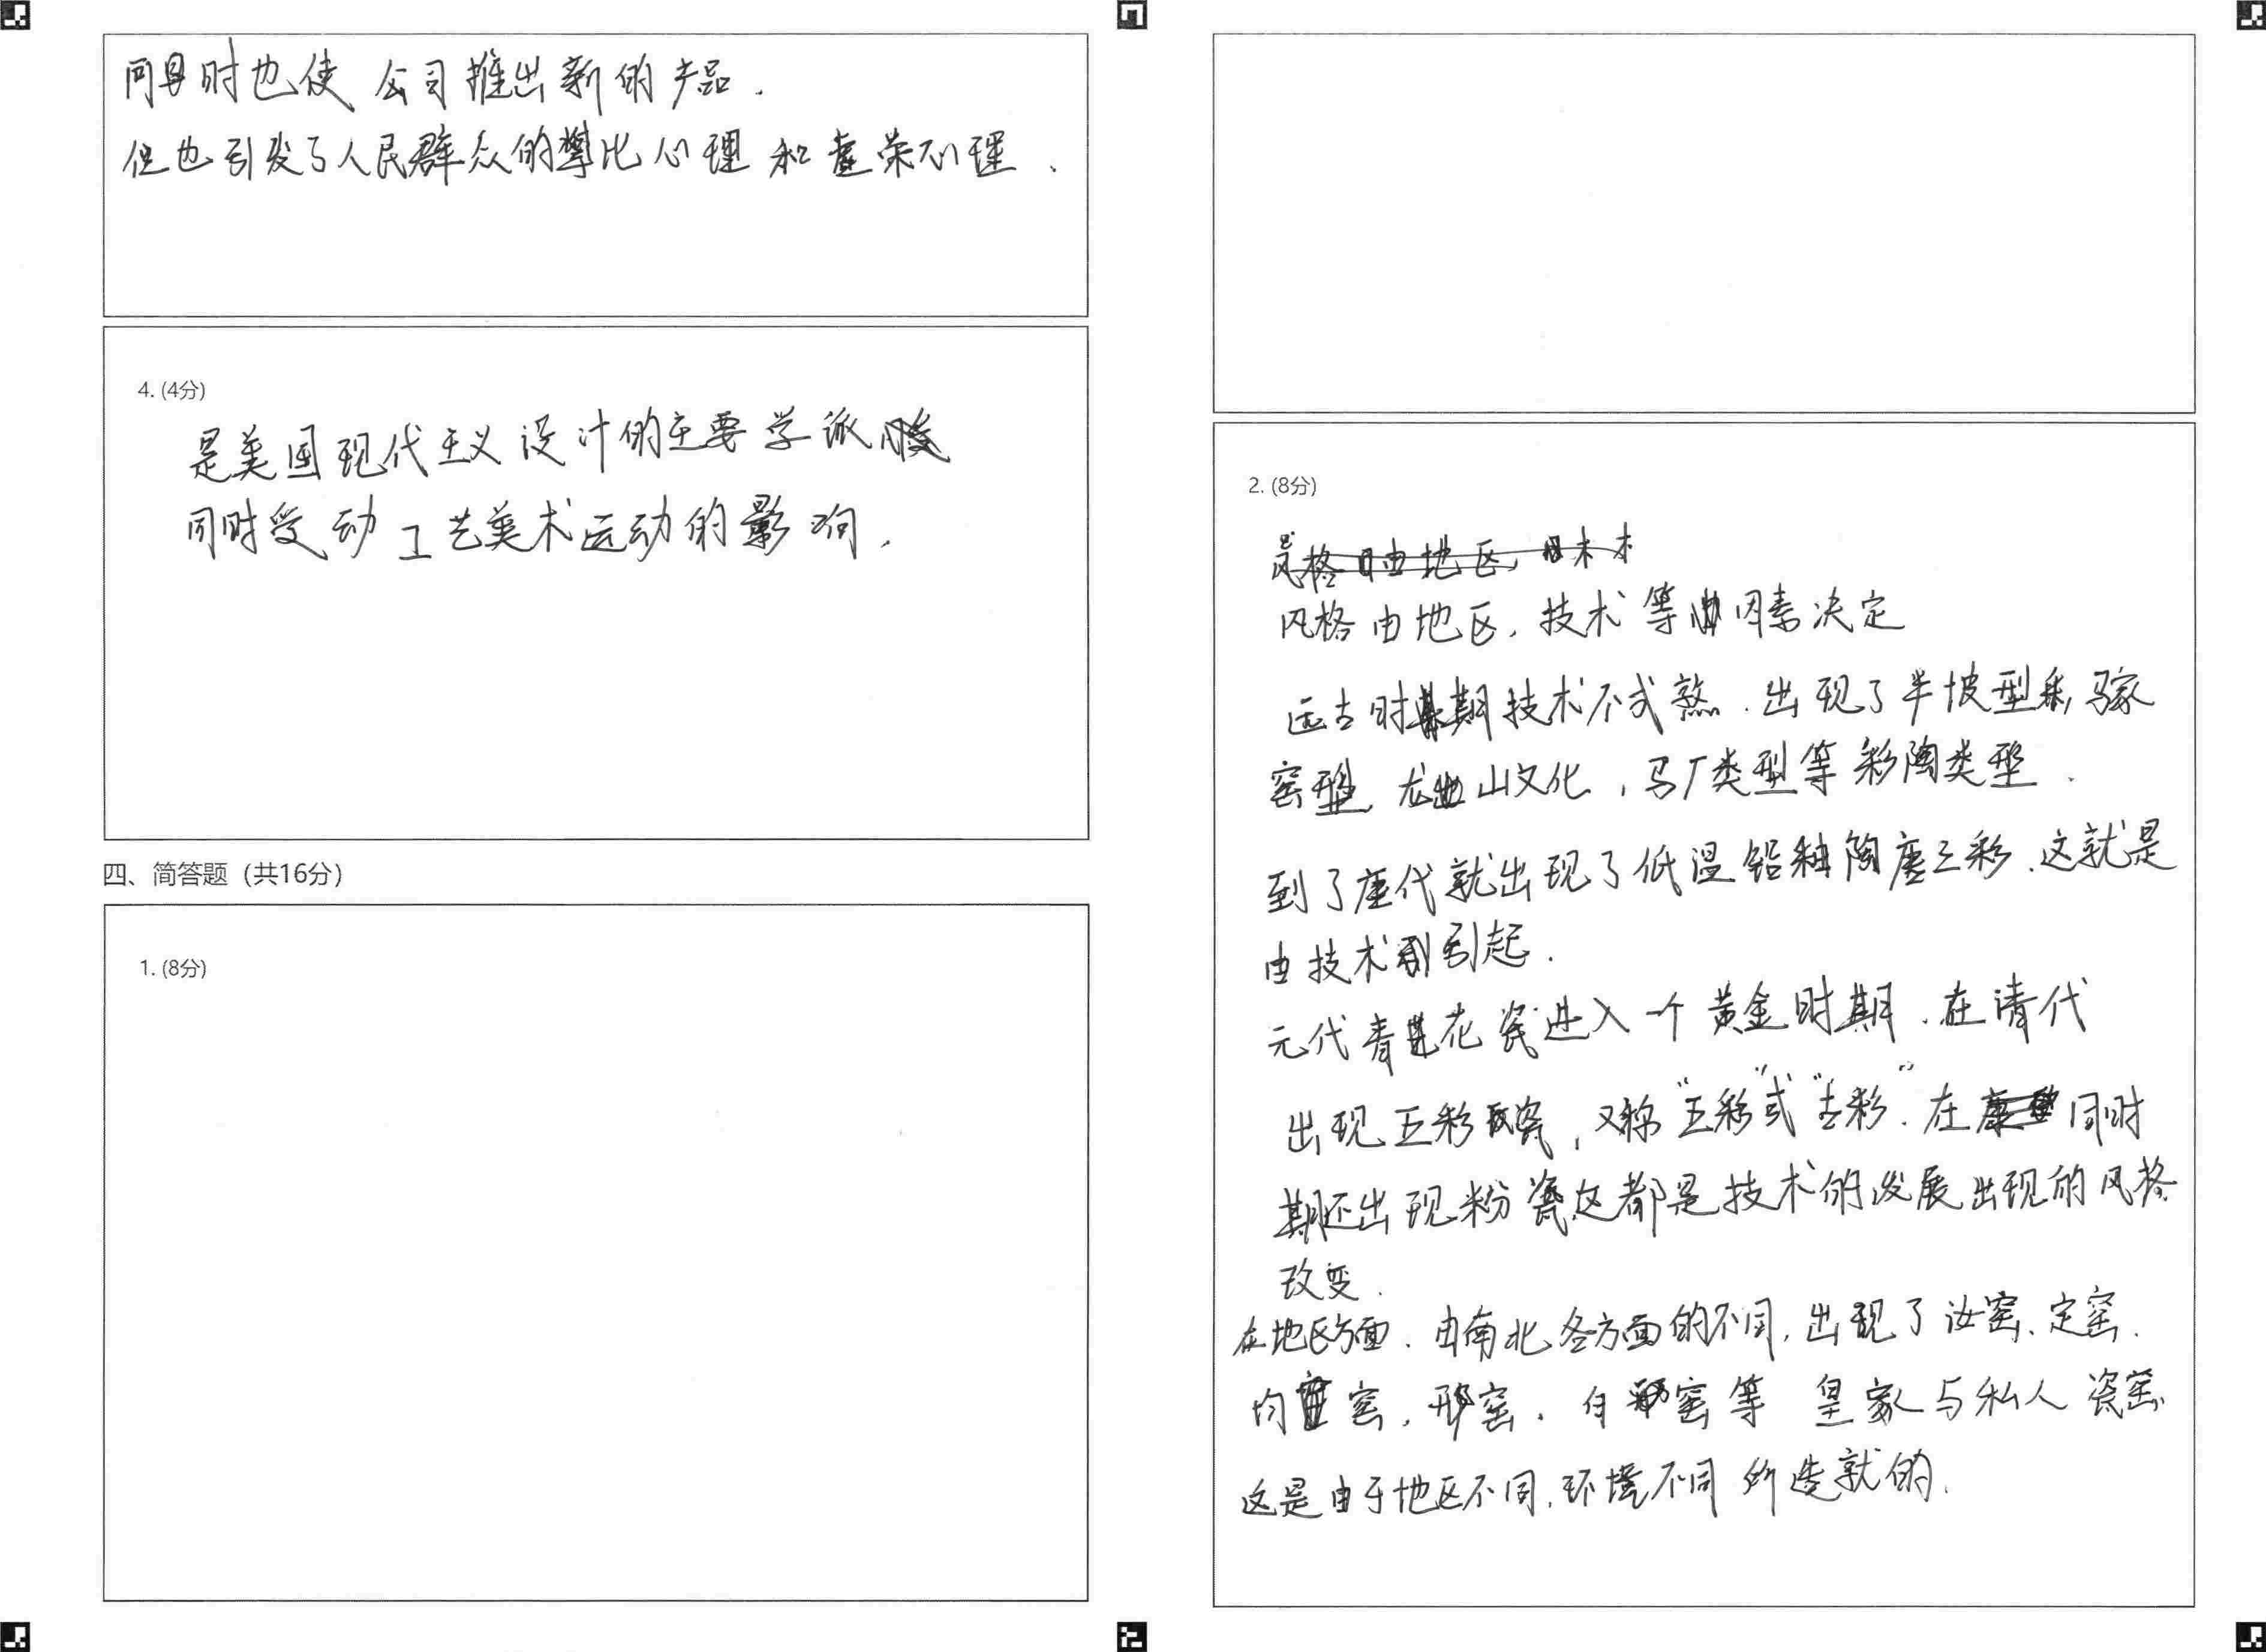 同时也使公司推出新的产品.
但也引发了人民群众的攀比心理和虚荣心理.
4. (4分)
是美国现代主义设计的主要学派
同时受动工艺美术运动的影响,
四、简答题（共16分）
1. (8分)
2. (8分)
风格由地区,
风格由地区,技术等因素决定
远古时期技术不成熟.出现了半坡型,马家
窑型,龙山文化,马厂类型等彩陶类型.
到了唐代就出现了低温铅釉陶唐三彩.这就是
由技术引起.
元代青花瓷进入一个黄金时期.在清代
出现五彩瓷,又称"五彩"或"古彩".在同时
期还出现粉瓷这都是技术的发展出现的风格
改变.
在地区方面.由南北各方面的不同,出现了汝窑、定窑.
均窑,邢窑.自窑等 皇家与私人瓷窑,
这是由于地区不同,环境不同所造就的.